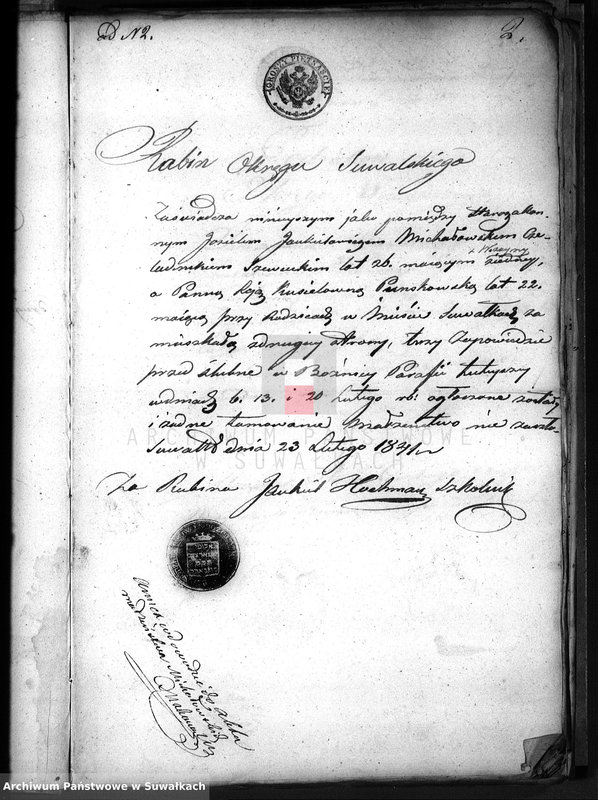 ad N2.
2.
GROSZY PIETNAŚCIE
Rabin Okręgu Suwalskiego
Zaświadcza ninieyszym jako pomiędzy Starozakon-
nym Joselem Jankielowiczem Michałowskim Cze-
ladnikiem Szewckim lat 26. maiącym
a Panną Koją Kusielowną Puńskowską lat 22.
maiącą przy Rodzicach w Mieście Suwałkach za
mieszkałą z drugiey strony, trzy Zapowiedzie
przed ślubne w Bożnicy Parafii tuteyszy
w dniach 6. 13. i 20 Lutego rb: ogłoszone zostały
i żadne tamowanie Małżeństwa nie zaszło
Suwałki dnia 23 Lutego 1841 r
Za Rabina Jankiel Hochman Szkolnik
ARCHIWUM PAŃSTWOWE
W SUWAŁKACH
do akta
małżeństwa Michałowski
Archiwum Państwowe w Suwałkach